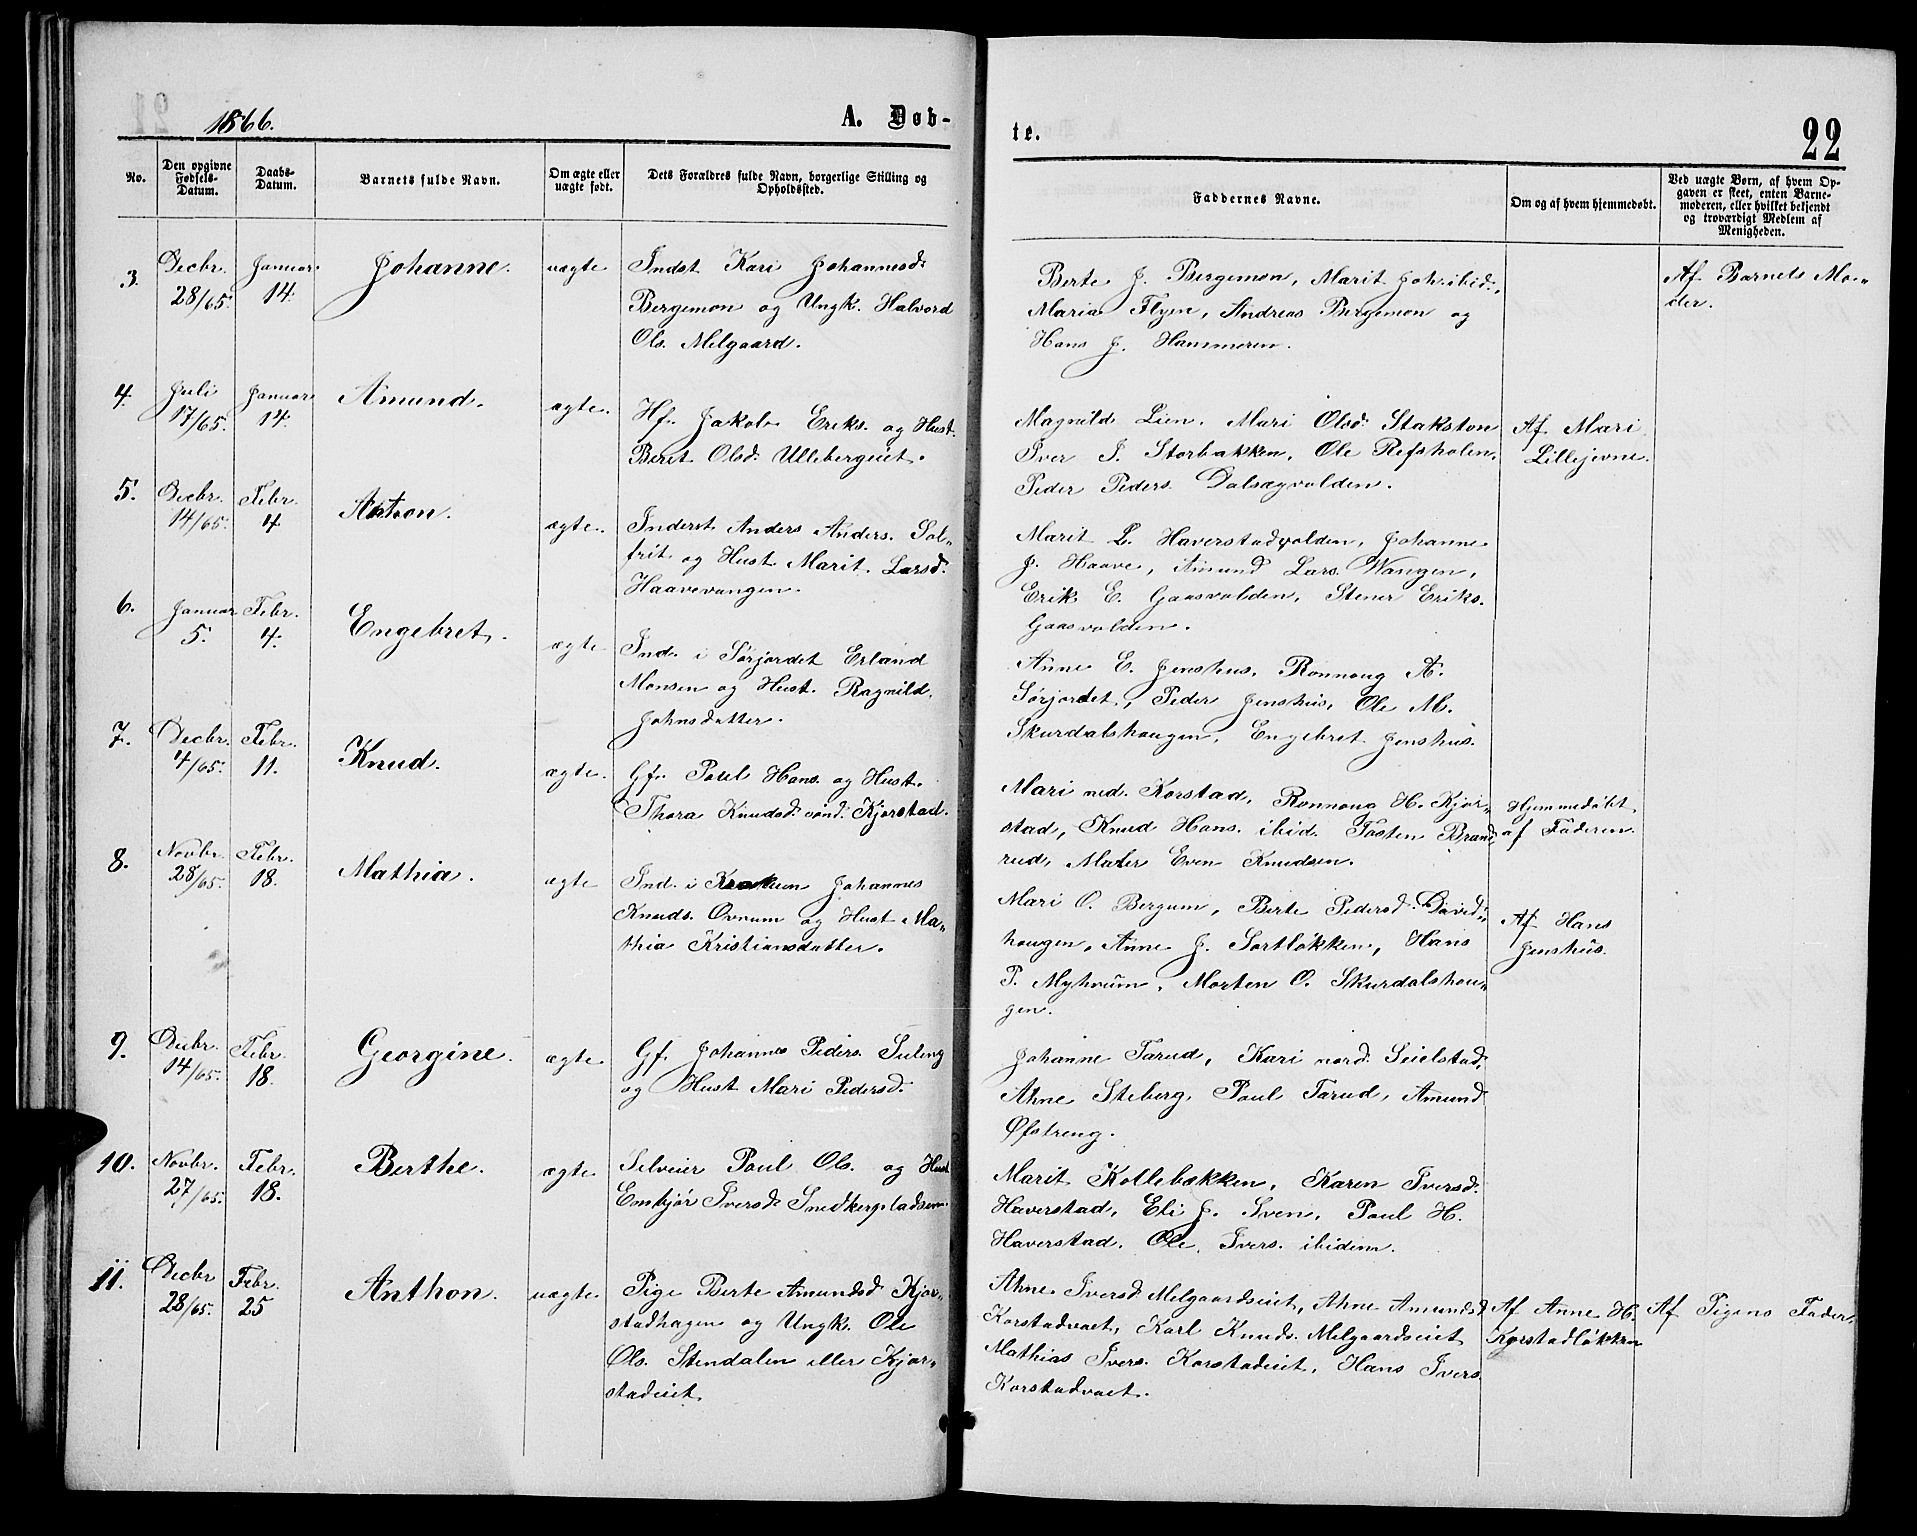 1866.
A. Døb-
te.
22
No.
Den opgivne
Fødsels-
Datum.
Daabs-
Datum.
Barnets fulde Navn.
Om ægte eller
uægte født.
Dets Forældres fulde Navn, borgerlige Stilling og
Opholdssted.
Faddernes Navne.
Om og af hvem hjemmedøbt.
Ved uægte Børn, af hvem Op-
gaven er skeet, enten Barne-
moderen, eller hvilket bekjendt
og troværdigt Medlem af
Menigheden.
3.
Decbr.
28/65.
Januar
14.
Johanne.
uægte
Indst. Kari Johannesd.
Bergemon og Ungk. Halvord
Ols. Melgaard.
Berte J. Bergemon, Marit Joh. ibid.,
Maria Flyen, Andreas Bergemon og
Hans J. Hammeren.
Af Barnets Mo-
der.
4.
Juli
17/65.
Januar
14.
Amund.
ægte.
Hf. Jakob Eriks. og Hust.
Berit Olsd. Ullebergeiet.
Magnild Lien. Mari Olsd. Stakston
Iver I. Storbakken, Ole Refsholen,
Peder Peders. Dalsegvolden.
Af Mari
Lillejevne.
5.
Decbr.
14/65.
Febr.
4.
Anton.
ægte.
Inderst Anders Anders. Sol-
frit og Hust. Marit Larsd.
Haavevangen.
Marit L. Haverstadvolden, Johanne
J. Haave, Amund Lars. Wangen,
Erik E. Gaasvolden, Stener Eriks.
Gaasvolden.
6.
Januar
5.
Febr.
4.
Engebret.
ægte
Ind. i Sørjordet Erland
Monsen og Hust. Ragnild
Johnsdatter.
Anne E. Jenshus, Ronnoug A.
Sørjordet, Peder Jenshus, Ole M.
Skurdalshaugen, Engebret Jenshus.
7.
Decbr.
4/65.
Febr.
11.
Knud.
ægte.
Gf. Poul Hans. og Hust.
Thora Knudsd. sønd. Kjorstad.
Mari ned. Korstad, Ronnoug H. Kjor-
stad, Knud Hans. ibid. Tosten Brand-
rud, Maler Even Knudsen.
Hjemmedøbt
af Faderen.
8.
Novbr.
28/65.
Febr.
18.
Mathia.
ægte
Ind. i Johannes
Knuds. Ovrum og Hust. Ma-
thia Kristiansdatter.
Mari O. Bergum, Berte Pedersd. David-
hougen, Anne J. Sortløkken, Hans
P. Myhrum, Morten O. Skurdalshou-
gen.
Af Hans
Jenshus.
9.
Decbr.
14/65.
Febr.
18.
Georgine.
ægte
Gf. Johannes Peders. Suleng
og Hust. Mari Pedersd.
Johanne Tarud, Kari nord. Seielstad,
Ahne Steberg, Poul Tarud, Amund
Øfstreng.
10.
Novbr.
27/65.
Febr.
18.
Berthe.
ægte
Selveier Poul Ols. og Hust
Embjør Iversd. Snedkerpladsen.
Marit Kollebækken, Karen Iversd.
Haverstad, Eli J. Sven, Poul H.
Haverstad. Ole Ivers. ibidem.
11.
Decbr
28/65.
Febr.
25
Anthon.
uægte.
Pige Berte Amundsd Kjor-
stadhagen og Ungk. Ole
Ols. Stendalen eller Kjor-
stadeiet.
Ahne Iversd Melgaardseiet, Ahne Amundsd
Korstadvaet, Karl Knuds. Melgaardseiet
Mathias Ivers. Korstadeiet, Hans Ivers
Korstadvaet.
Af Anne H.
Korstadløkken
Af Pigens Fader.